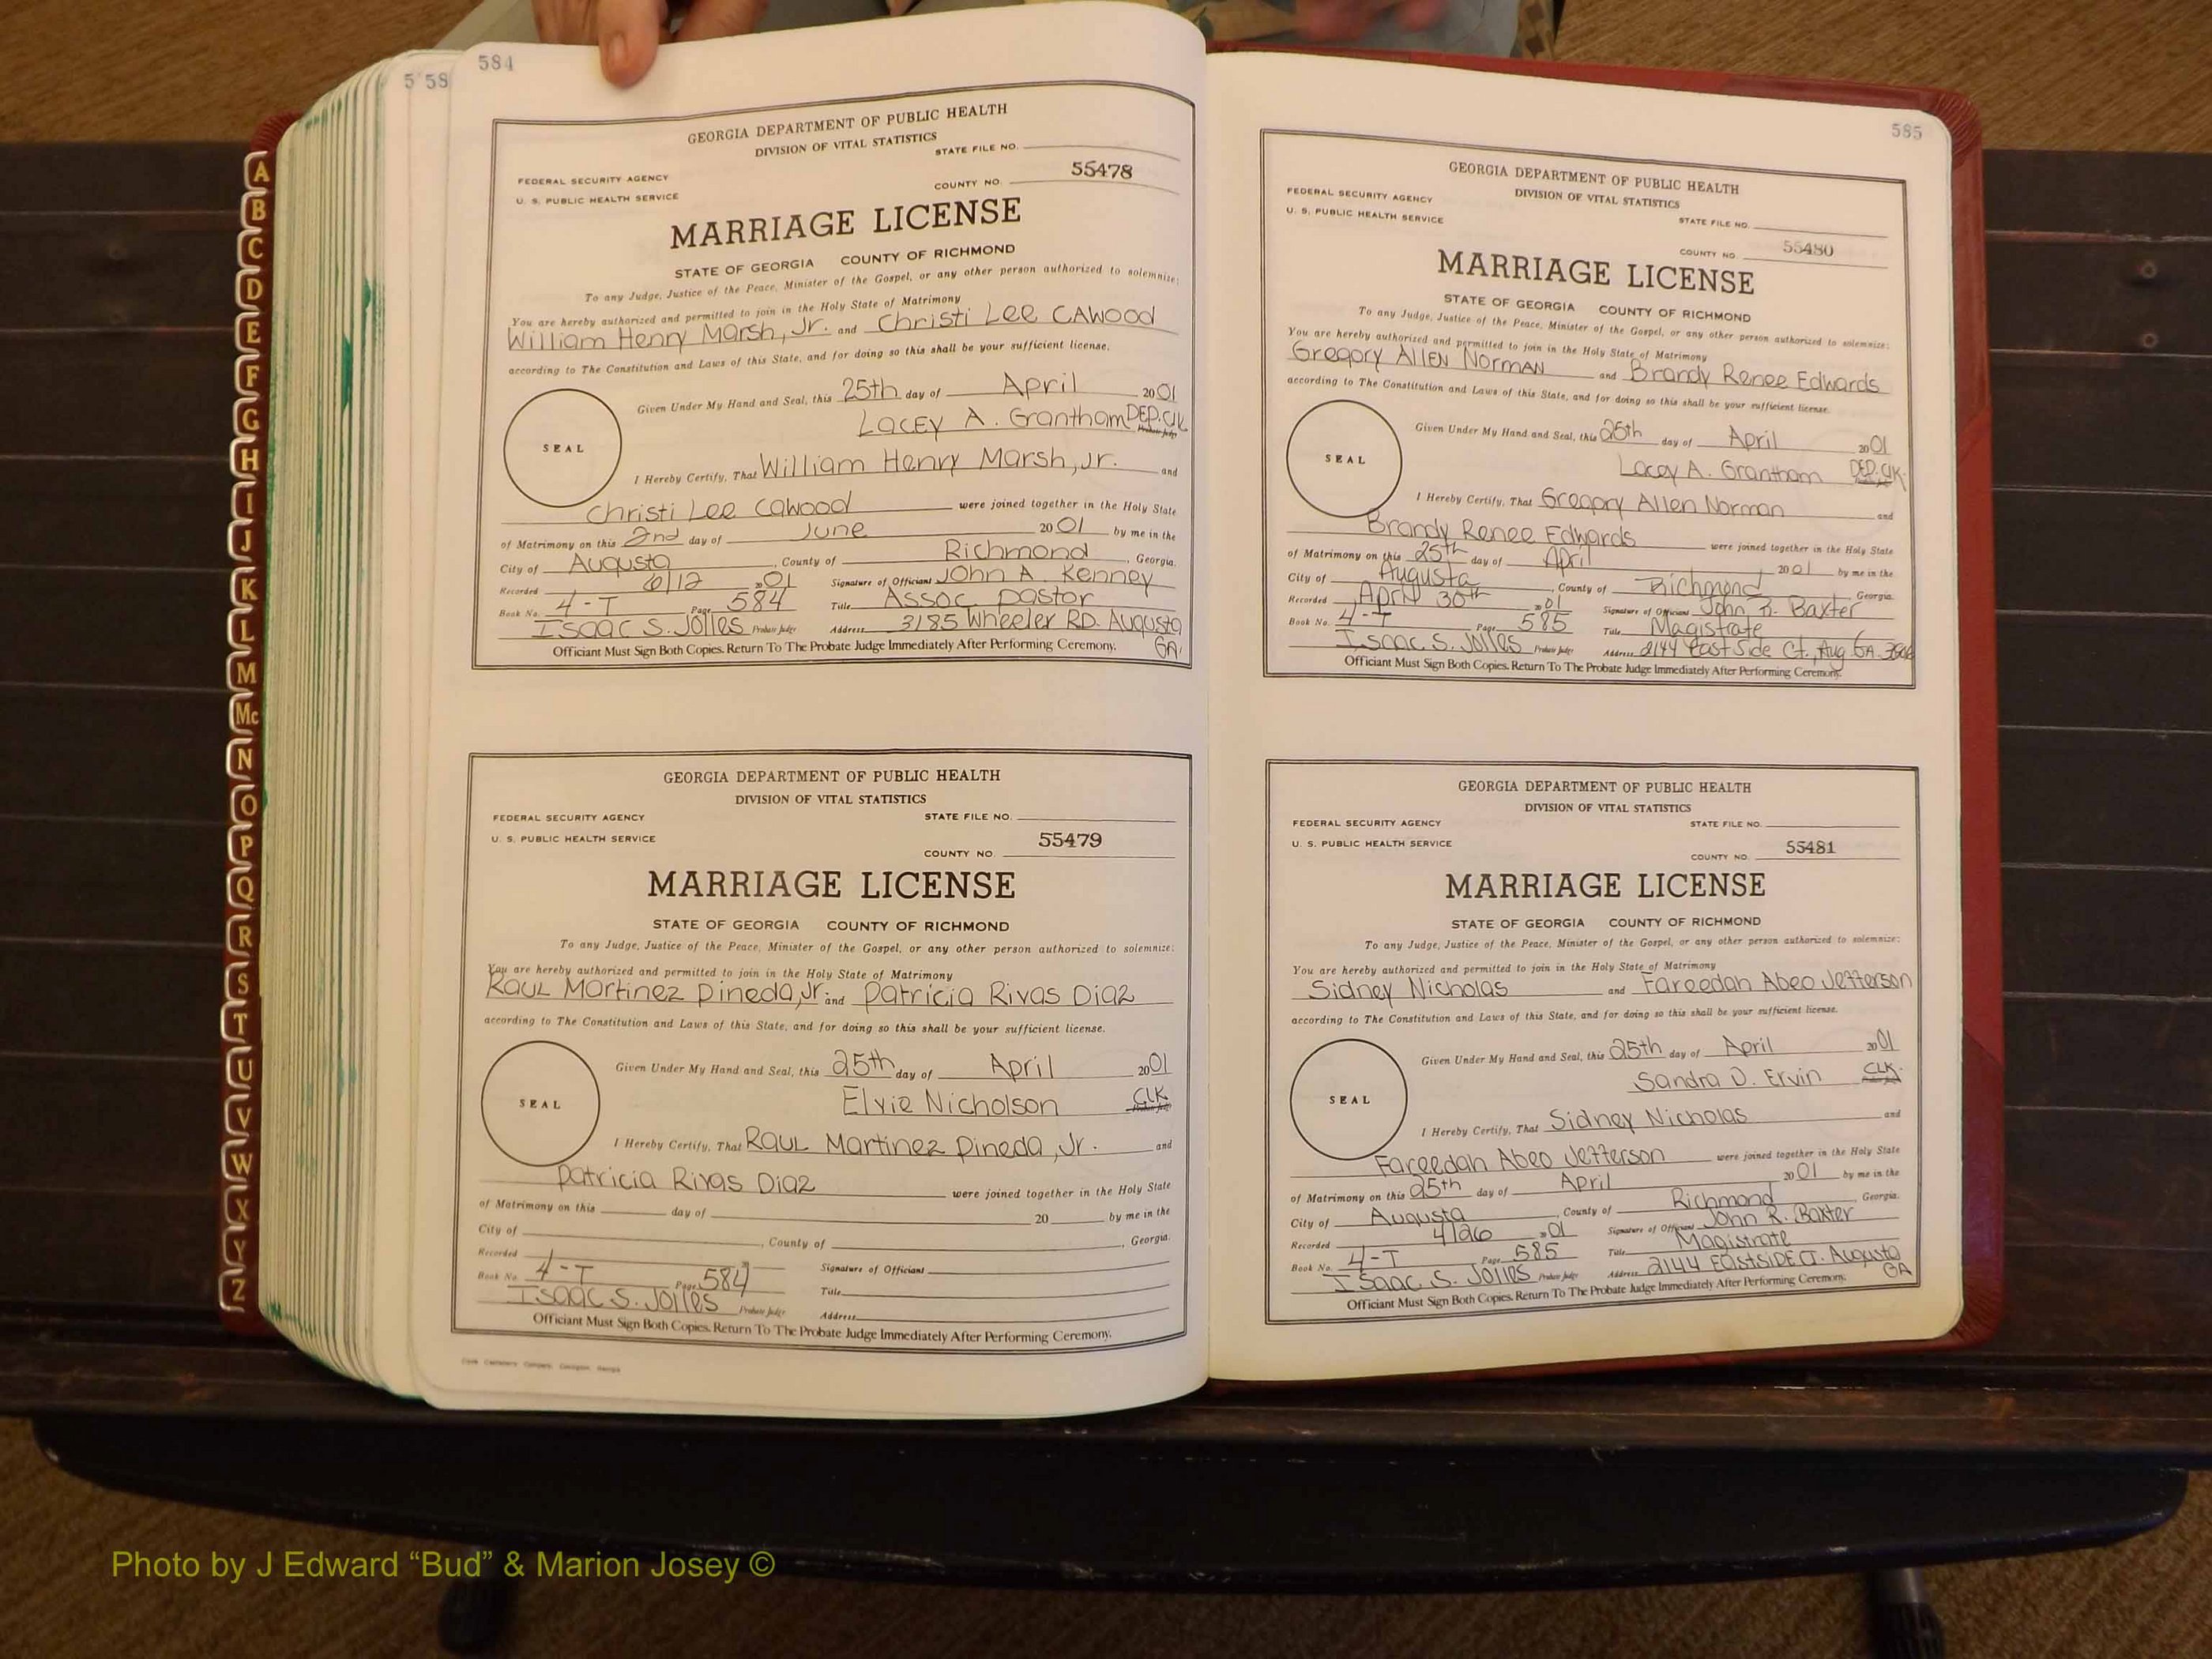 584
5 58
A
B
C
D
E
F
G
H
I
J
K
L
M
Mc
N
O
P
Q
R
S
T
U
V
W
X
Y
Z
GEORGIA DEPARTMENT OF PUBLIC HEALTH
DIVISION OF VITAL STATISTICS
STATE FILE NO.
FEDERAL SECURITY AGENCY
55478
U. S. PUBLIC HEALTH SERVICE
COUNTY NO.
MARRIAGE LICENSE
STATE OF GEORGIA COUNTY OF RICHMOND
To any Judge, Justice of the Peace, Minister of the Gospel, or any other person authorized to solemnize:
You are hereby authorized and permitted to join in the Holy State of Matrimony
William Henry Marsh, Jr. and Christi Lee CAwood
according to The Constitution and Laws of this State, and for doing so this shall be your sufficient license.
Given Under My Hand and Seal, this 25th day of April 2001
Lacey A. Grantham DEP. CLK
SEAL
I Hereby Certify, That William Henry Marsh, Jr. and
Christi Lee Cawood were joined together in the Holy State
of Matrimony on this 2nd day of June 2001 by me in the
City of Augusta, County of Richmond, Georgia.
Recorded 6/12 2001 Signature of Officiant John A. Kenney
Book No. 4-T Page 584 Title Assoc pastor
Isaac S. Jolles Probate Judge Address 3185 Wheeler RD. Augusta
GA
Officiant Must Sign Both Copies. Return To The Probate Judge Immediately After Performing Ceremony.
GEORGIA DEPARTMENT OF PUBLIC HEALTH
DIVISION OF VITAL STATISTICS
FEDERAL SECURITY AGENCY STATE FILE NO.
U. S. PUBLIC HEALTH SERVICE 55479
COUNTY NO.
MARRIAGE LICENSE
STATE OF GEORGIA COUNTY OF RICHMOND
To any Judge, Justice of the Peace, Minister of the Gospel, or any other person authorized to solemnize:
You are hereby authorized and permitted to join in the Holy State of Matrimony
Raul Martinez Pineda, Jr. and Patricia Rivas Diaz
according to The Constitution and Laws of this State, and for doing so this shall be your sufficient license.
Given Under My Hand and Seal, this 25th day of April 2001
Elvie Nicholson CLK
SEAL
I Hereby Certify, That Raul Martinez Pineda, Jr. and
Patricia Rivas Diaz were joined together in the Holy State
of Matrimony on this day of 20 by me in the
City of , County of , Georgia.
Recorded 20 Signature of Officiant
Book No. 4-T Page 584 Title
Isaac S. Jolles Probate Judge Address
Officiant Must Sign Both Copies. Return To The Probate Judge Immediately After Performing Ceremony.
585
GEORGIA DEPARTMENT OF PUBLIC HEALTH
DIVISION OF VITAL STATISTICS
FEDERAL SECURITY AGENCY
U. S. PUBLIC HEALTH SERVICE
STATE FILE NO.
COUNTY NO. 55480
MARRIAGE LICENSE
STATE OF GEORGIA COUNTY OF RICHMOND
To any Judge, Justice of the Peace, Minister of the Gospel, or any other person authorized to solemnize:
You are hereby authorized and permitted to join in the Holy State of Matrimony
Gregory Allen Norman and Brandy Renee Edwards
according to The Constitution and Laws of this State, and for doing so this shall be your sufficient license.
Given Under My Hand and Seal, this 25th day of April 2001
Lacey A. Grantham DEP. CLK.
SEAL
I Hereby Certify, That Gregory Allen Norman and
Brandy Renee Edwards were joined together in the Holy State
of Matrimony on this 25th day of April 2001 by me in the
City of Augusta, County of Richmond, Georgia.
Recorded April 30th 2001 Signature of Officiant John R. Baxter
Book No. 4-T Page 585 Title Magistrate
Isaac S. Jolles Probate Judge Address 2144 East Side Ct., Aug. GA
Officiant Must Sign Both Copies. Return To The Probate Judge Immediately After Performing Ceremony.
GEORGIA DEPARTMENT OF PUBLIC HEALTH
DIVISION OF VITAL STATISTICS
FEDERAL SECURITY AGENCY STATE FILE NO.
U. S. PUBLIC HEALTH SERVICE
COUNTY NO. 55481
MARRIAGE LICENSE
STATE OF GEORGIA COUNTY OF RICHMOND
To any Judge, Justice of the Peace, Minister of the Gospel, or any other person authorized to solemnize:
You are hereby authorized and permitted to join in the Holy State of Matrimony
Sidney Nicholas and Fareedah Abeo Jefferson
according to The Constitution and Laws of this State, and for doing so this shall be your sufficient license.
Given Under My Hand and Seal, this 25th day of April 2001
Sandra D. Ervin CLK.
SEAL
I Hereby Certify, That Sidney Nicholas and
Fareedah Abeo Jefferson were joined together in the Holy State
of Matrimony on this 25th day of April 2001 by me in the
City of Augusta, County of Richmond, Georgia.
Recorded 4/26 2001 Signature of Officiant John R. Baxter
Book No. 4-T Page 585 Title Magistrate
Isaac S. Jolles Probate Judge Address 2144 EastSide CT. Augusta
GA
Officiant Must Sign Both Copies. Return To The Probate Judge Immediately After Performing Ceremony.
Photo by J Edward “Bud” & Marion Josey ©